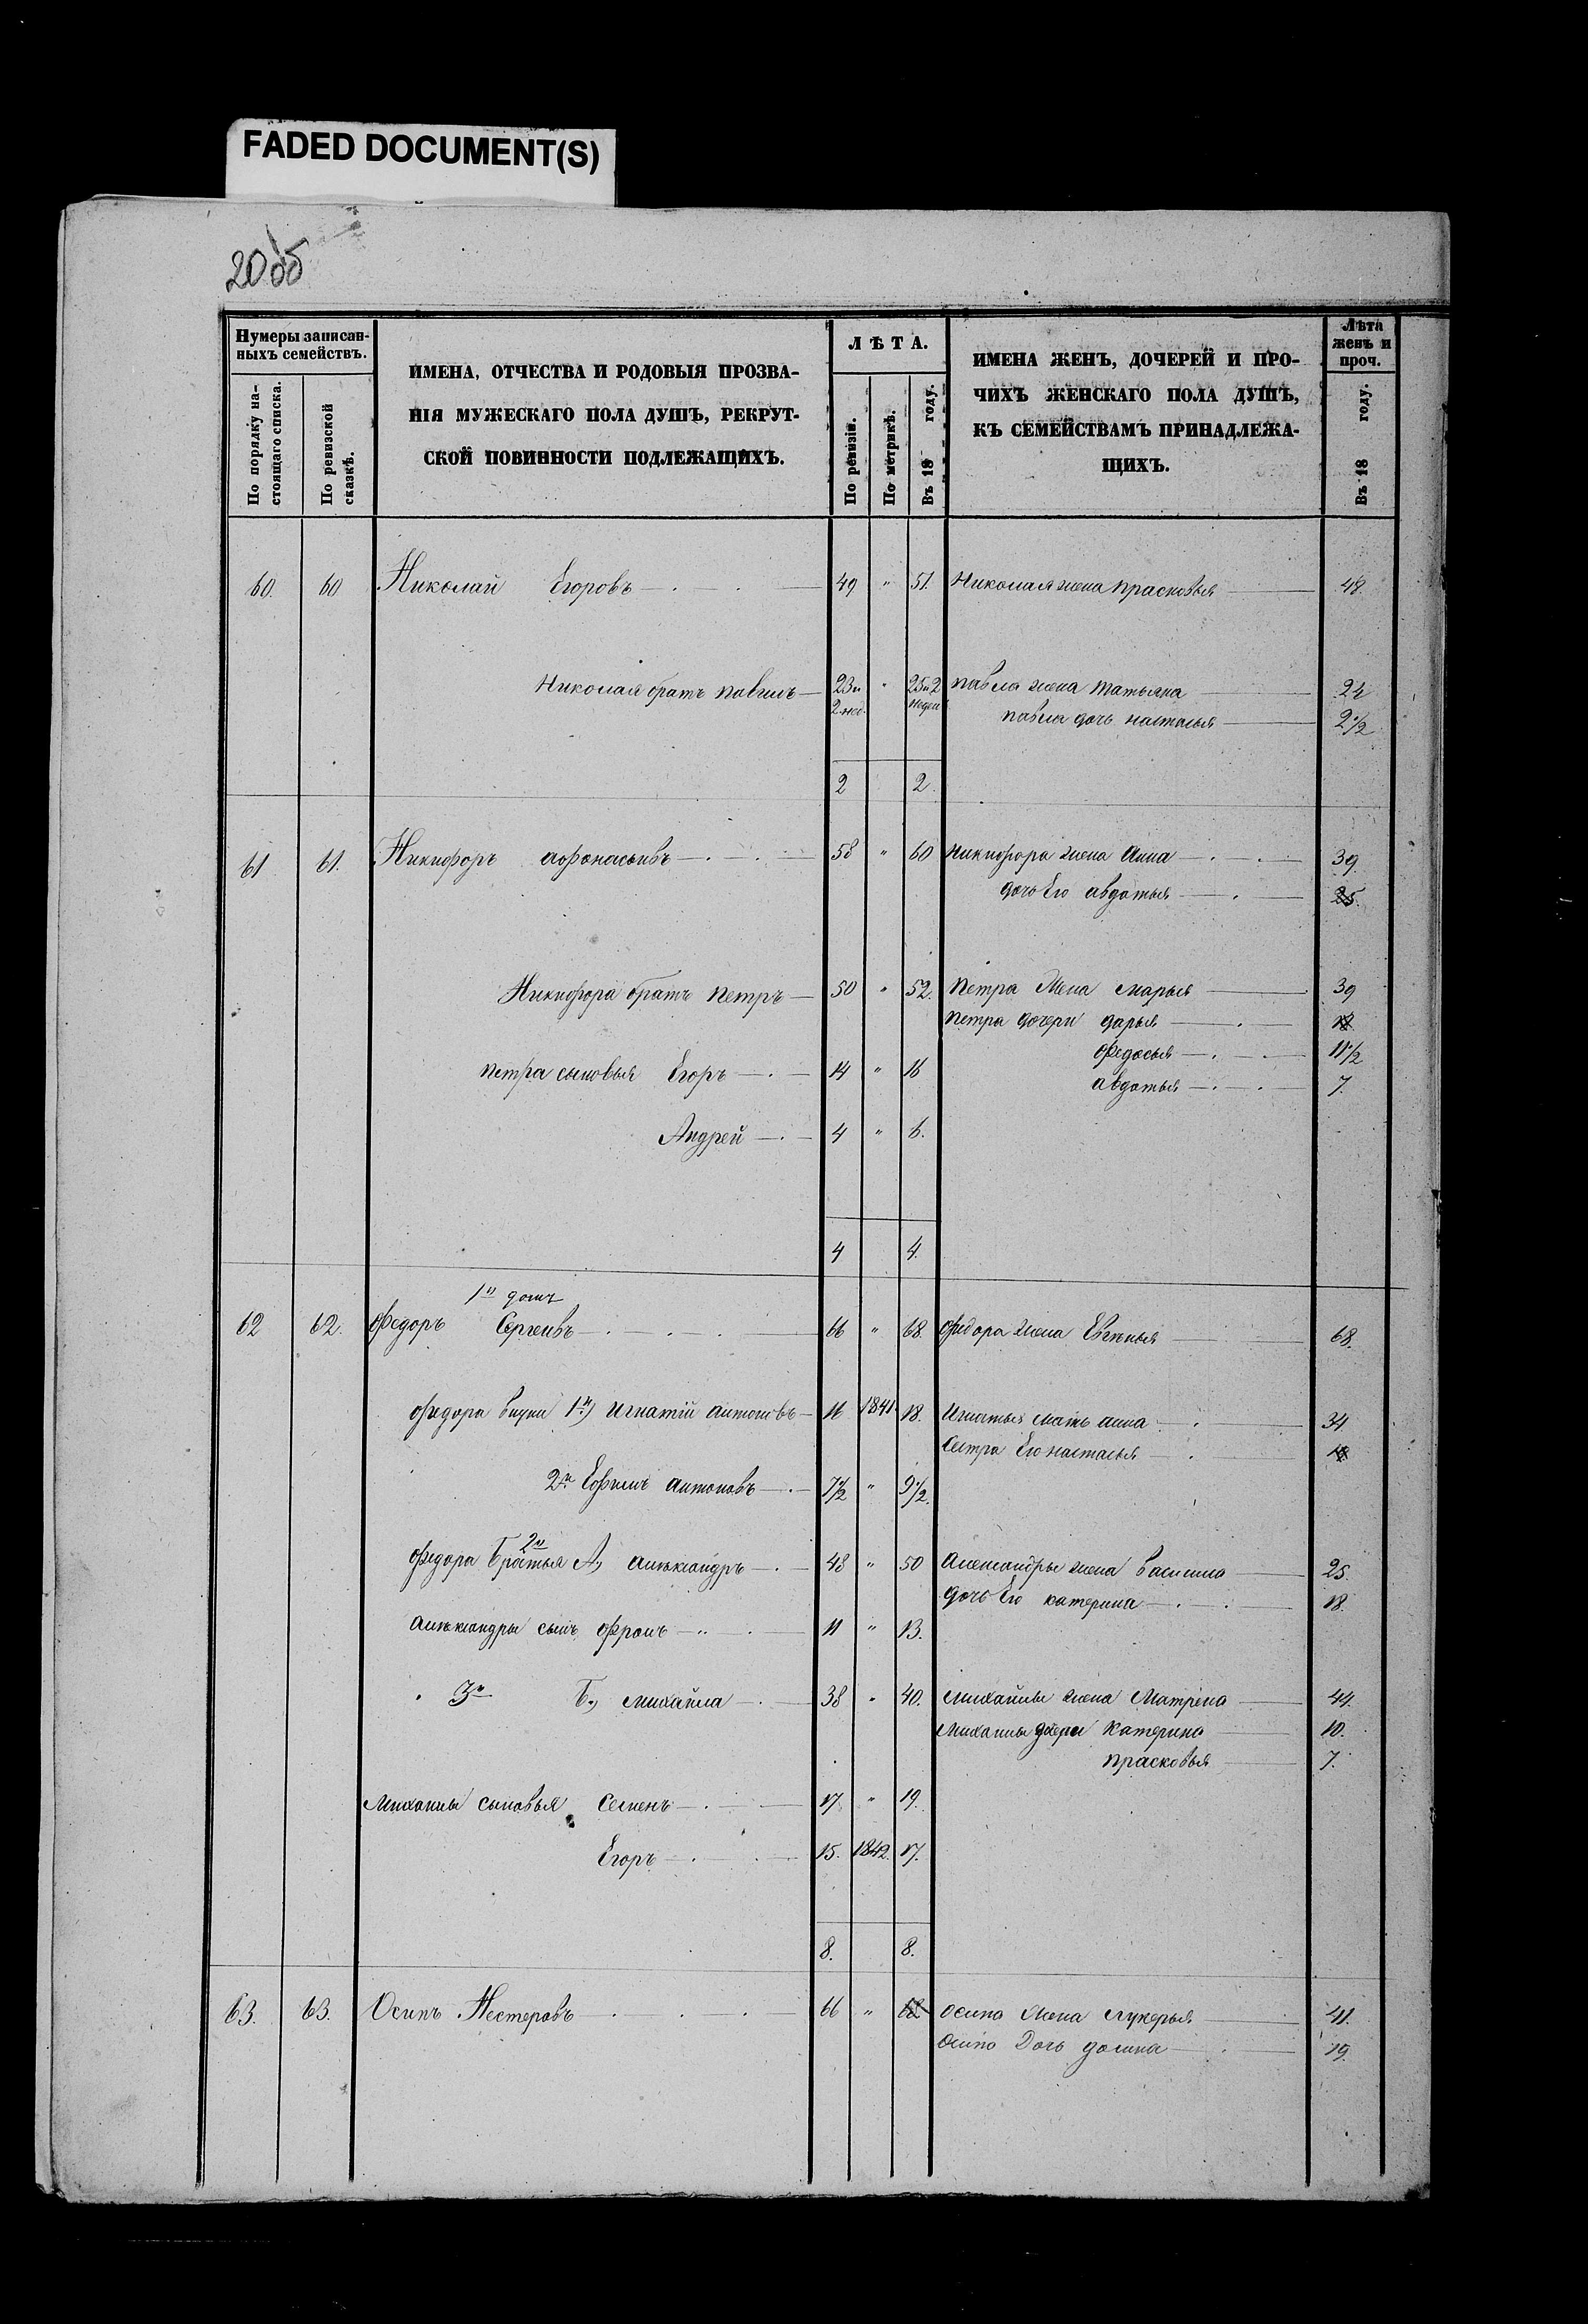 FADED DOCUMENT(S)
20об
Нумеры записан-
ныхъ семействъ.
По порядку на-
стоящаго списка.
По ревизской
сказкѣ.
ИМЕНА, ОТЧЕСТВА И РОДОВЫЯ ПРОЗВА-
НІЯ МУЖЕСКАГО ПОЛА ДУШЪ, РЕКРУТ-
СКОЙ ПОВИННОСТИ ПОДЛЕЖАЩИХЪ.
ЛѢТА.
По ревизіи.
По метрикѣ.
Въ 18 году.
ИМЕНА ЖЕНЪ, ДОЧЕРЕЙ И ПРО-
ЧИХЪ ЖЕНСКАГО ПОЛА ДУШЪ,
КЪ СЕМЕЙСТВАМЪ ПРИНАДЛЕЖА-
ЩИХЪ.
Лѣта
женъ и
проч.
Въ 18 году.
60. 60 Николай Егоровъ 49 " 51. Николая жена прасковья 48.
Николая братъ павелъ 23и " 25и2 павла жена татьяна 24
2 нед. недели павла дочь настасья 2 1/2
2 2.
61 61. Никифоръ афонасьивъ 58 " 60 никифора жена Анна 39.
дочь Его авдотья 25.
Никифора братъ петръ 50 " 52. Петра Жена марья 39
петра дочери дарья
федосья 11 1/2
петра сыновья Егоръ 14 " 16
авдотья 7.
Андрей 4 " 6.
4 4.
1й домъ
62 62. федоръ Сергеивъ 66 " 68. федора жена Евгенья 68.
федора внуки 1й) игнатій антоновъ 16 1841 18. Игнатья мать анна 34.
Сестра Его настасья
2й Ефимъ антоновъ 7 1/2 " 9 1/2.
2й
федора Братья А, алѣксандръ 48 " 50 Александры жена василиса 25.
дочь Его катерина 18.
алѣксандры сынъ фролъ 11 " 13.
3й Б, михайла 38 " 40. михайлы жена Матрена 44.
михайлы дочери катерина 10.
прасковья 7.
михайлы сыновья Семенъ 17. " 19.
Егоръ 15. 1842. 17.
8. 8.
63. 63. Осипъ Нестеровъ 66 " осипа жена лукерья 41.
осипа Дочь домна 19.